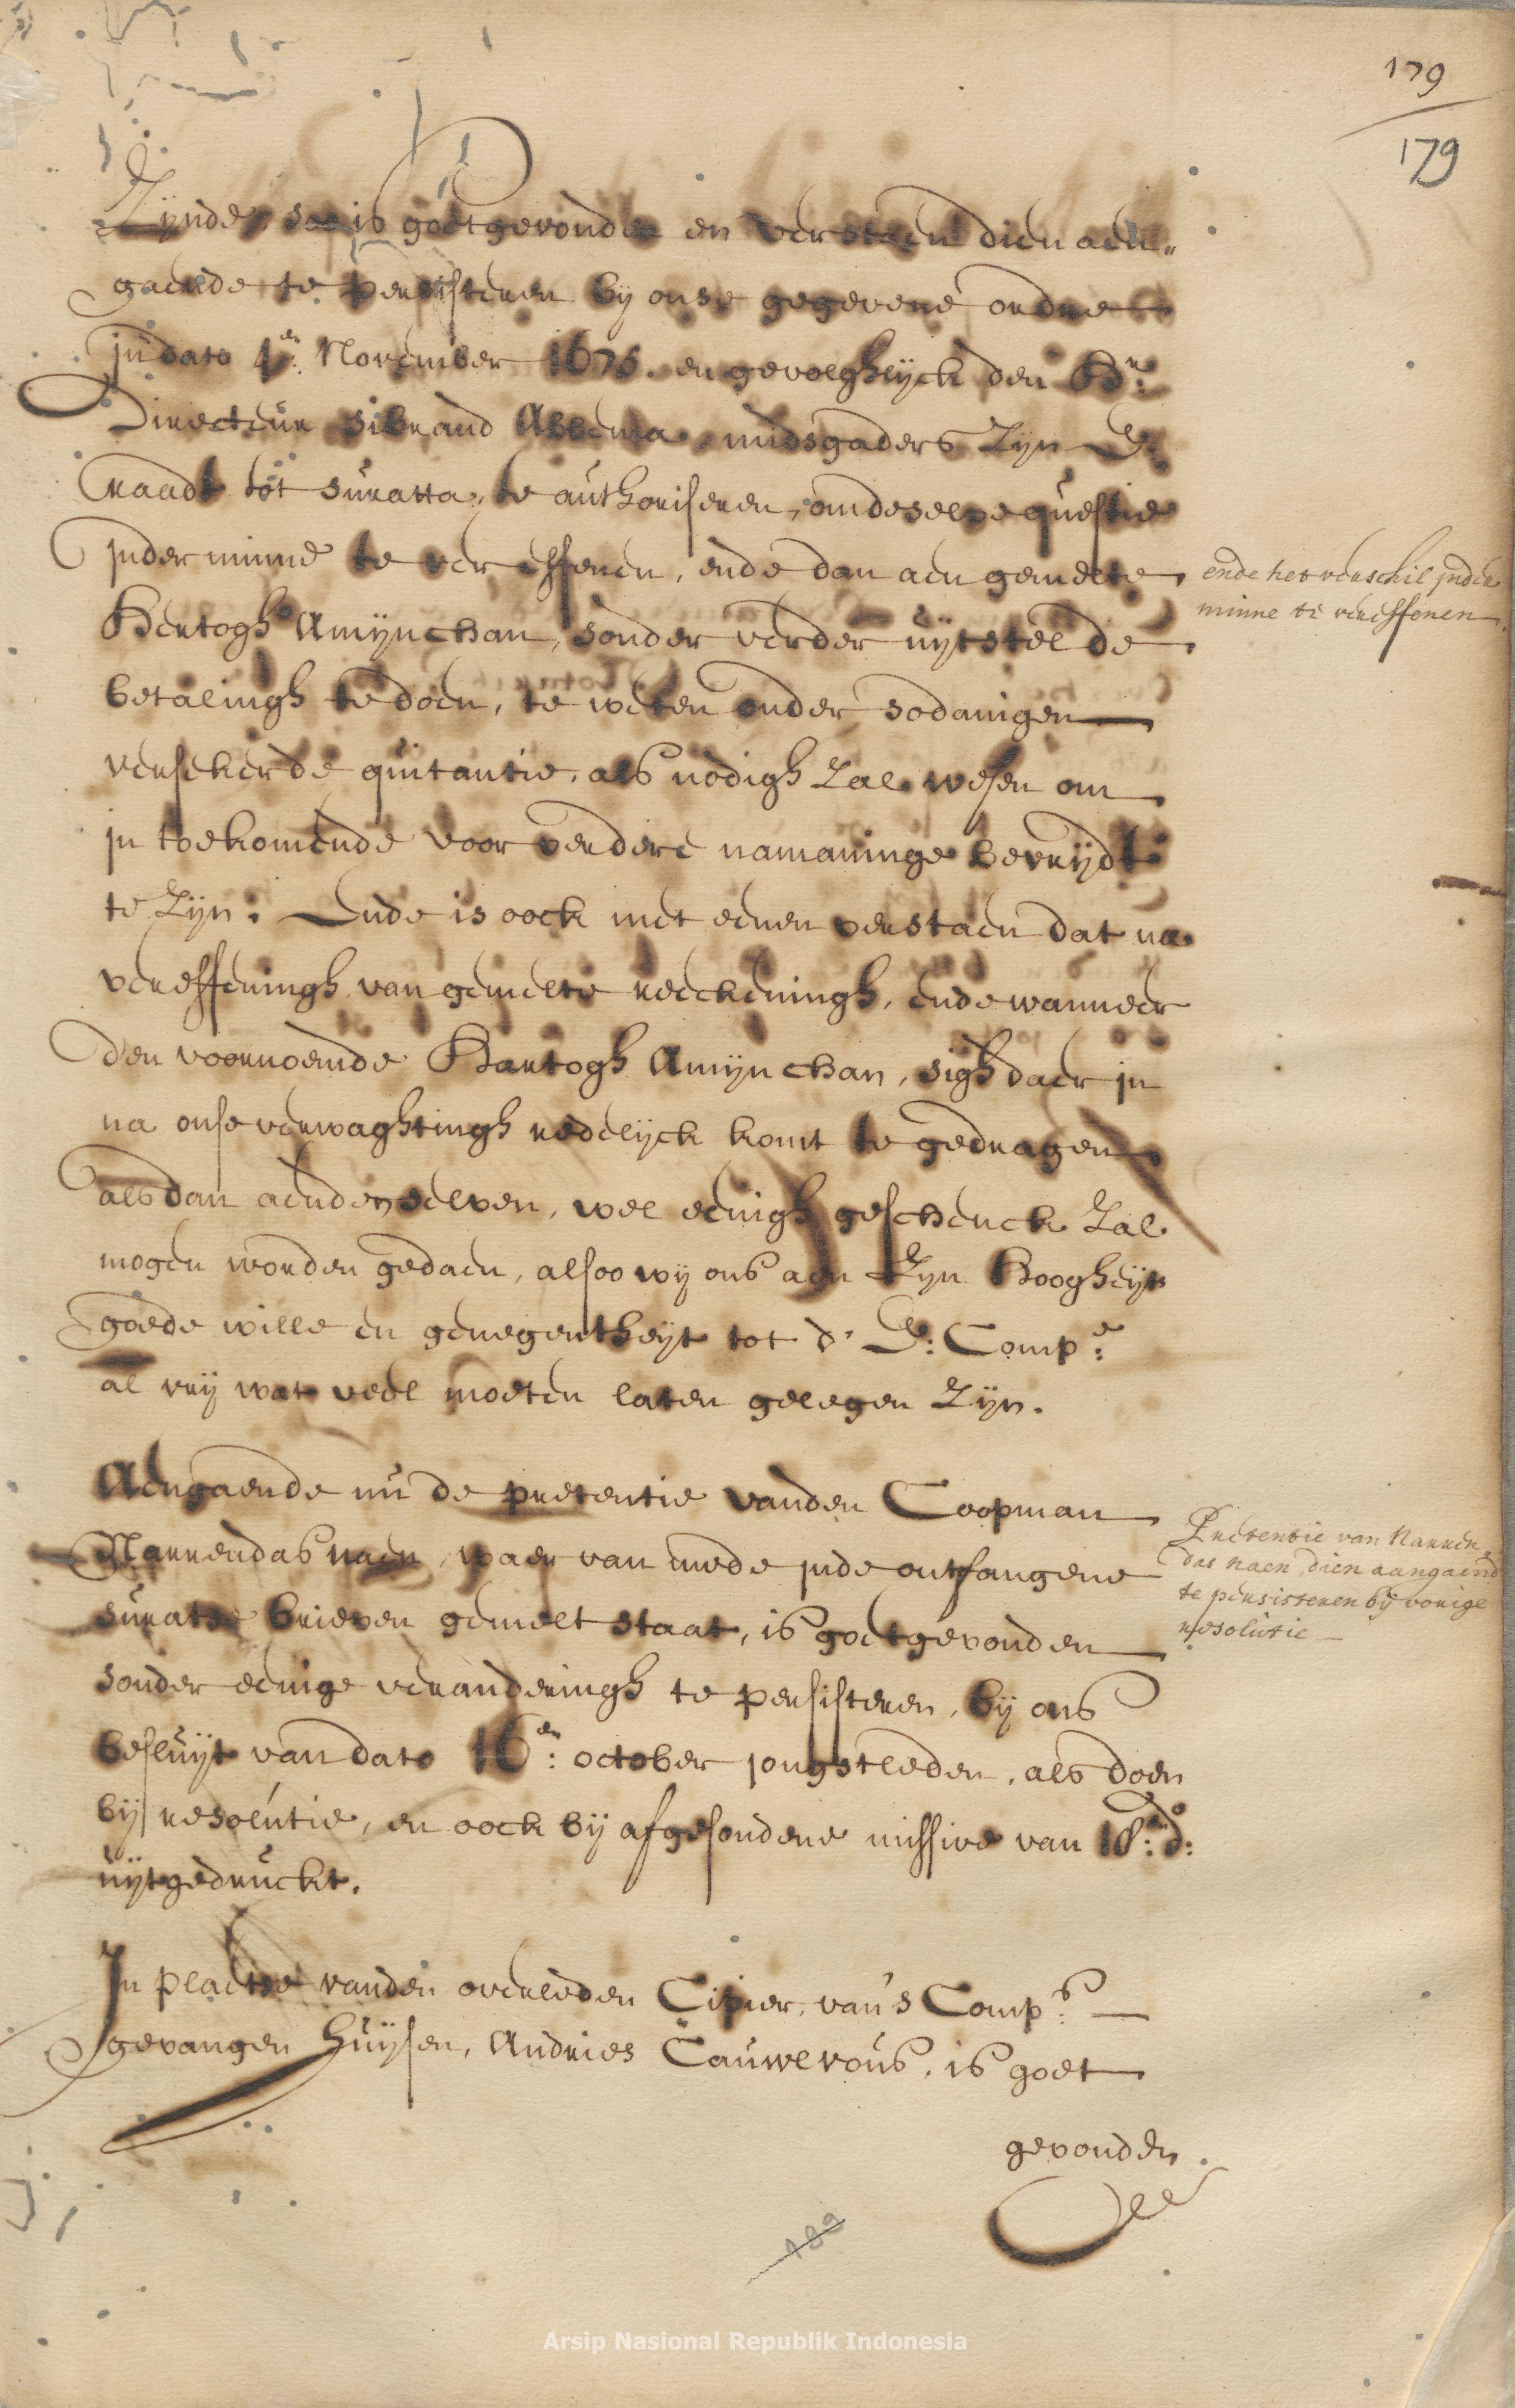 179
179
Zijnde, soo is goetgevonden en verstaen dien aen„
gaende te persisteren bij onse gegevene ordre
in dato 4en: November 1676. en gevolghlijck den Hr:
Directeur Sibrand Abbema midsgaders Zijn E:
raadt tot Suratta, te authoriseren, om deselve questie
in der minne te vereffenen, ende dan aen gemelte
Hertogh Amijnchan, sonder verder uijtstel de
betalingh te doen, te weten onder sodanigen
versekerde quitantie, als nodigh Zal wesen om
in toekomende voor verdere namaninge bevrijdt
te Zijn: Ende is oock met eenen verstaen dat na
vereffeningh van gemelte reeckeningh, ende wanneer
den voornoemde Hartogh Amijnchan, sigh daer in
na onse verwaghtingh redelijck komt te gedragen
als dan aen denselven, wel eenigh geschenck Zal
mogen worden gedaen, alsoo wij ons aen Zijn Hoogheijt
goede wille en genegentheijt tot d' E: Compe:
al vrij wat veel moeten laten gelegen Zijn.
ende het verschil in der
minne te vereffenen
Aengaende nu de pretentie vanden Coopman
Narrendas naen, waer van mede in de ontfangene
Suratse brieven gemelt staat, is goetgevonden
sonder eenige veranderingh te persisteren, bij ons
besluijt van dato 16en: october jongstleden, als doen
bij resolutie, en oock bij afgesondene missive van do:
uijtgedruckt.
Pretentie van Narren„
das naen, dien aangaend
te persisteren bij vorige
resolutie
In plaetse vanden overleden Cipier, van 's Comps:
gevangen huijsen, Andries Cauwevous, is goet
gevonden
Arsip Nasional Republik Indonesia